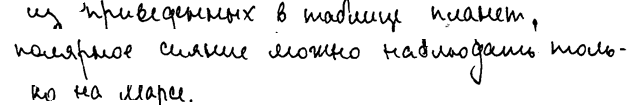 из приведенных в таблице планет,
полярное сияние можно наблюдать толь-
ко на марсе.